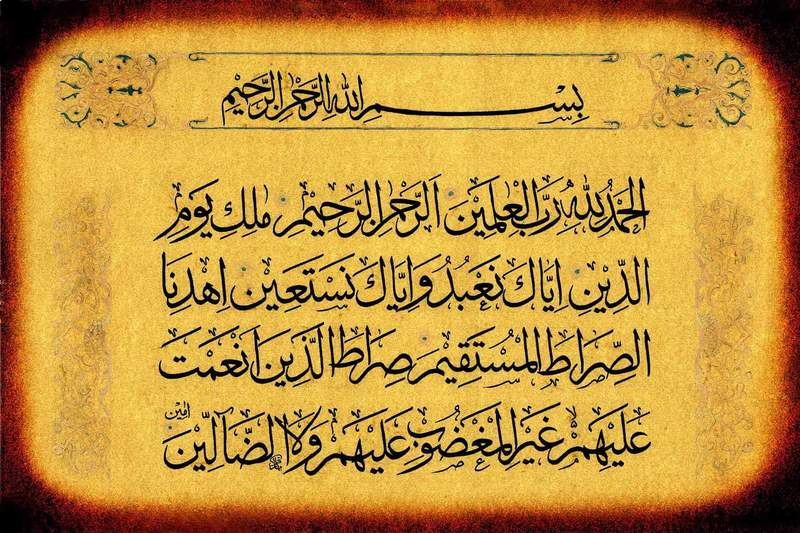 بِسْمِ اللهِ الرَّحْمٰنِ الرَّحِيْمِ
اَلْحَمْدُ لِلّٰهِ رَبِّ الْعٰلَمِيْنَ الرَّحْمٰنِ الرَّحِيْمِ مٰلِكِ يَوْمِ
الدِّيْنِ اِيَّاكَ نَعْبُدُ وَاِيَّاكَ نَسْتَعِيْنُ اِهْدِنَا
الصِّرَاطَ الْمُسْتَقِيْمَ صِرَاطَ الَّذِيْنَ اَنْعَمْتَ
عَلَيْهِمْ غَيْرِ الْمَغْضُوْبِ عَلَيْهِمْ وَلَا الضَّآلِّيْنَ اٰمِيْن